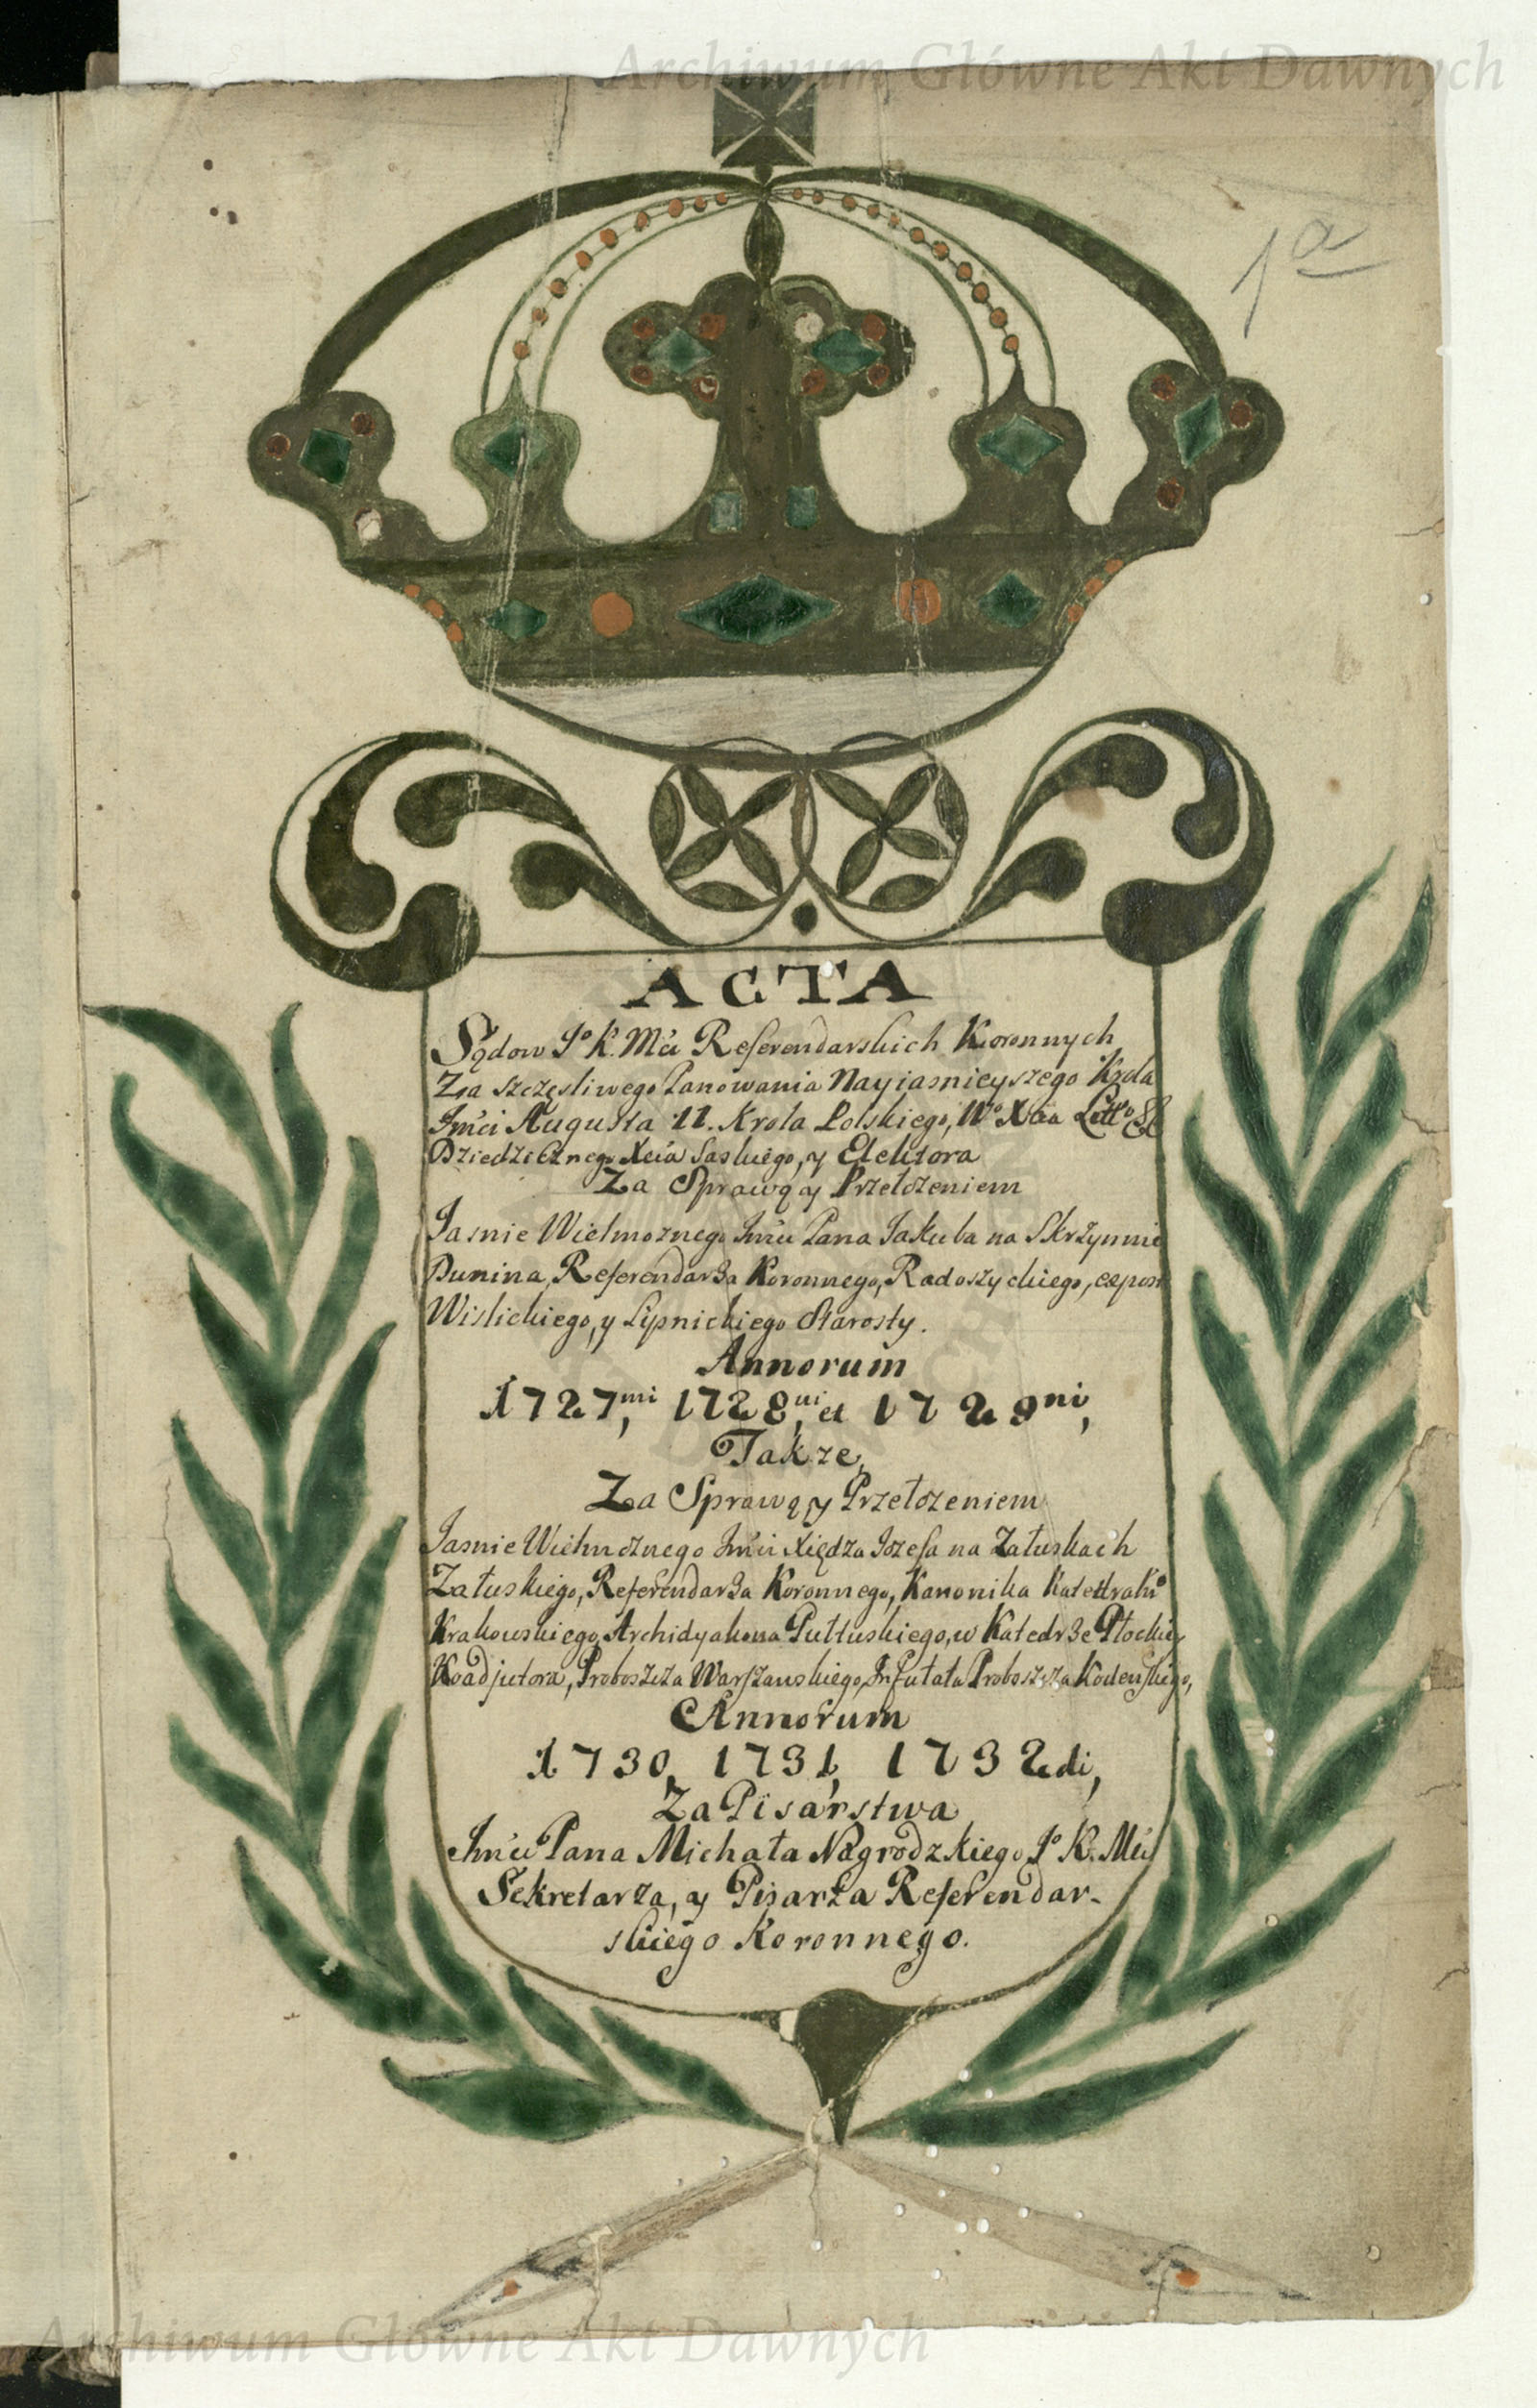 Archiwum Główne Akt Dawnych
1a
ACTA
Sądow Jo K. Mći Referendarskich Koronnych
Za szczęsliwego Panowania Nayiasnieyszego Krola
Jmći Augusta II. Krola Polskiego, Wo Xcia Litto &
Dziedzicznego Xcia Saskiego, y Elektora
Za Sprawą y Przełozeniem
Jasnie Wielmoznego Jmći Pana Jakuba na Skrzynnie
Dunina, Referendarza Koronnego, Radoszyckiego,
Wislickiego, y Lipnickiego Starosty.
Annorum
1727mi, 1728ui, et 1729ni,
Takze,
Za Sprawą y Przełozeniem
Jasnie Wielmoznego Jmći Xiędza Jozefa na Załuskach
Załuskiego, Referendarza Koronnego, Kanonika Katedralno
Krakowskiego, Archidyakona Pułtuskiego, w Katedrze Płockiey
Koadjutora, Proboszcza Warszawskiego, Infułata Proboszcza Kodenskiego,
Annorum
1730, 1731, 1732di,
Za Pisarstwa
Jmći Pana Michała Nagrodzkiego Jo K. Mći
Sekretarza, y Pisarza Referendar-
skiego Koronnego.
Archiwum Główne Akt Dawnych